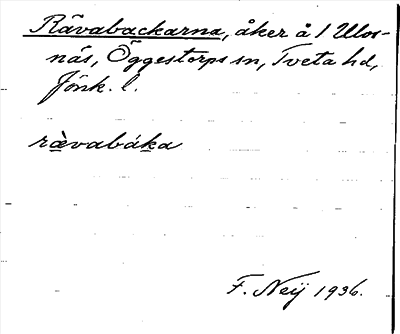 Rävabackarna, åker å 1 Ulos-
näs, Öggestorps sn, Tveta hd,
Jönk. l.
ràvabáka
F. Neij 1936.